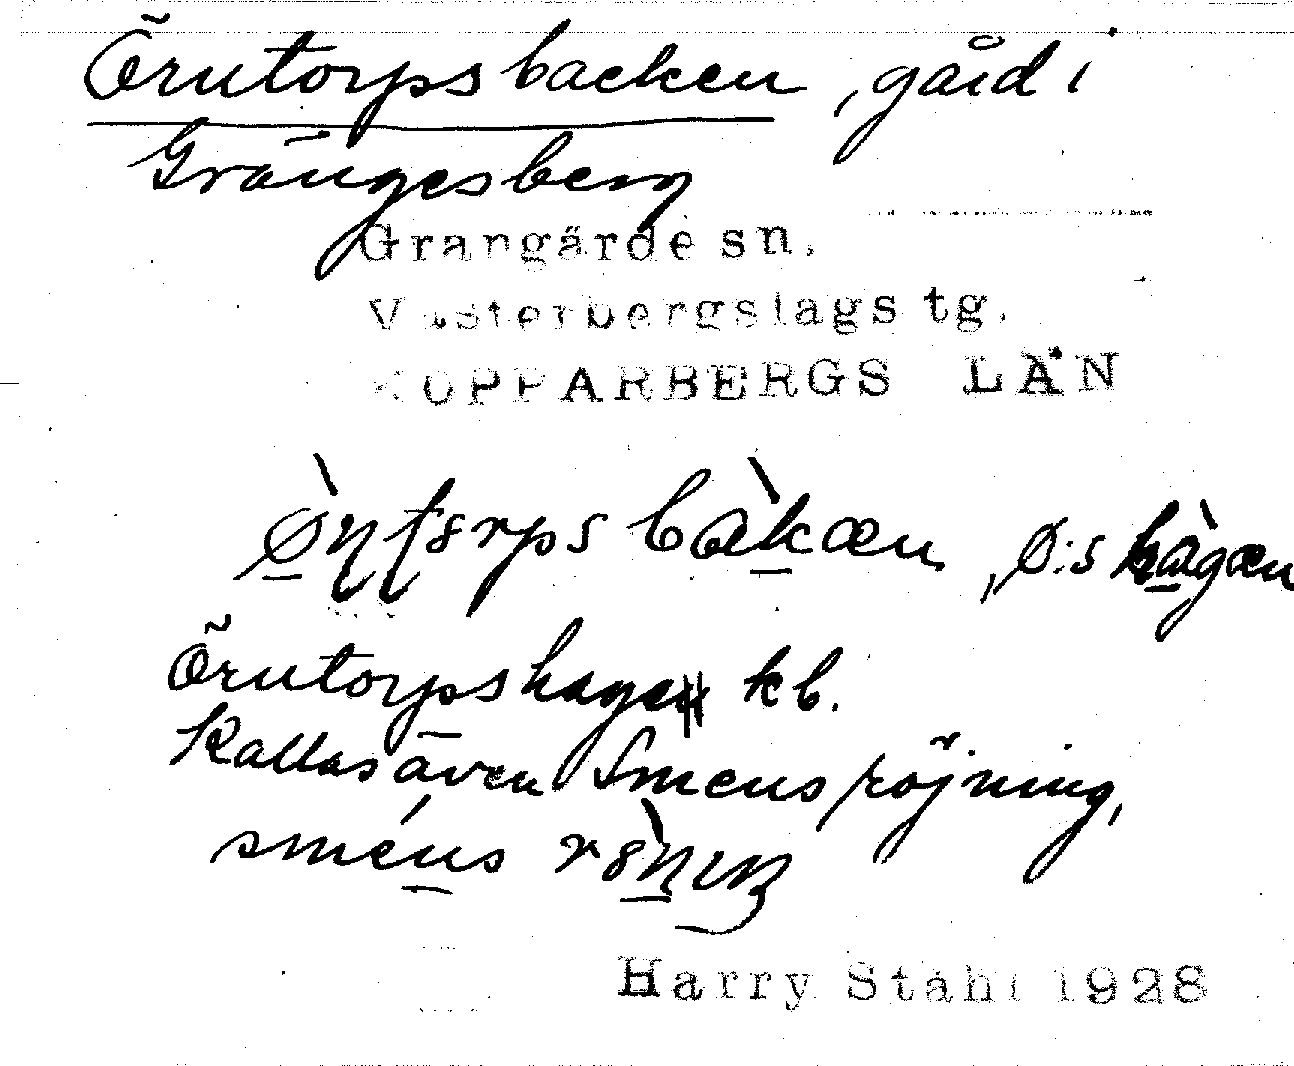 Örutorpsbacken, gård i
Grängesberg
Grangärde sn.
Västerbergslags tg.
KOPPARBERGS LÄN
Örutorpshagen kb.
Kallas även Smensröjning,
Harry Ståhl 1928